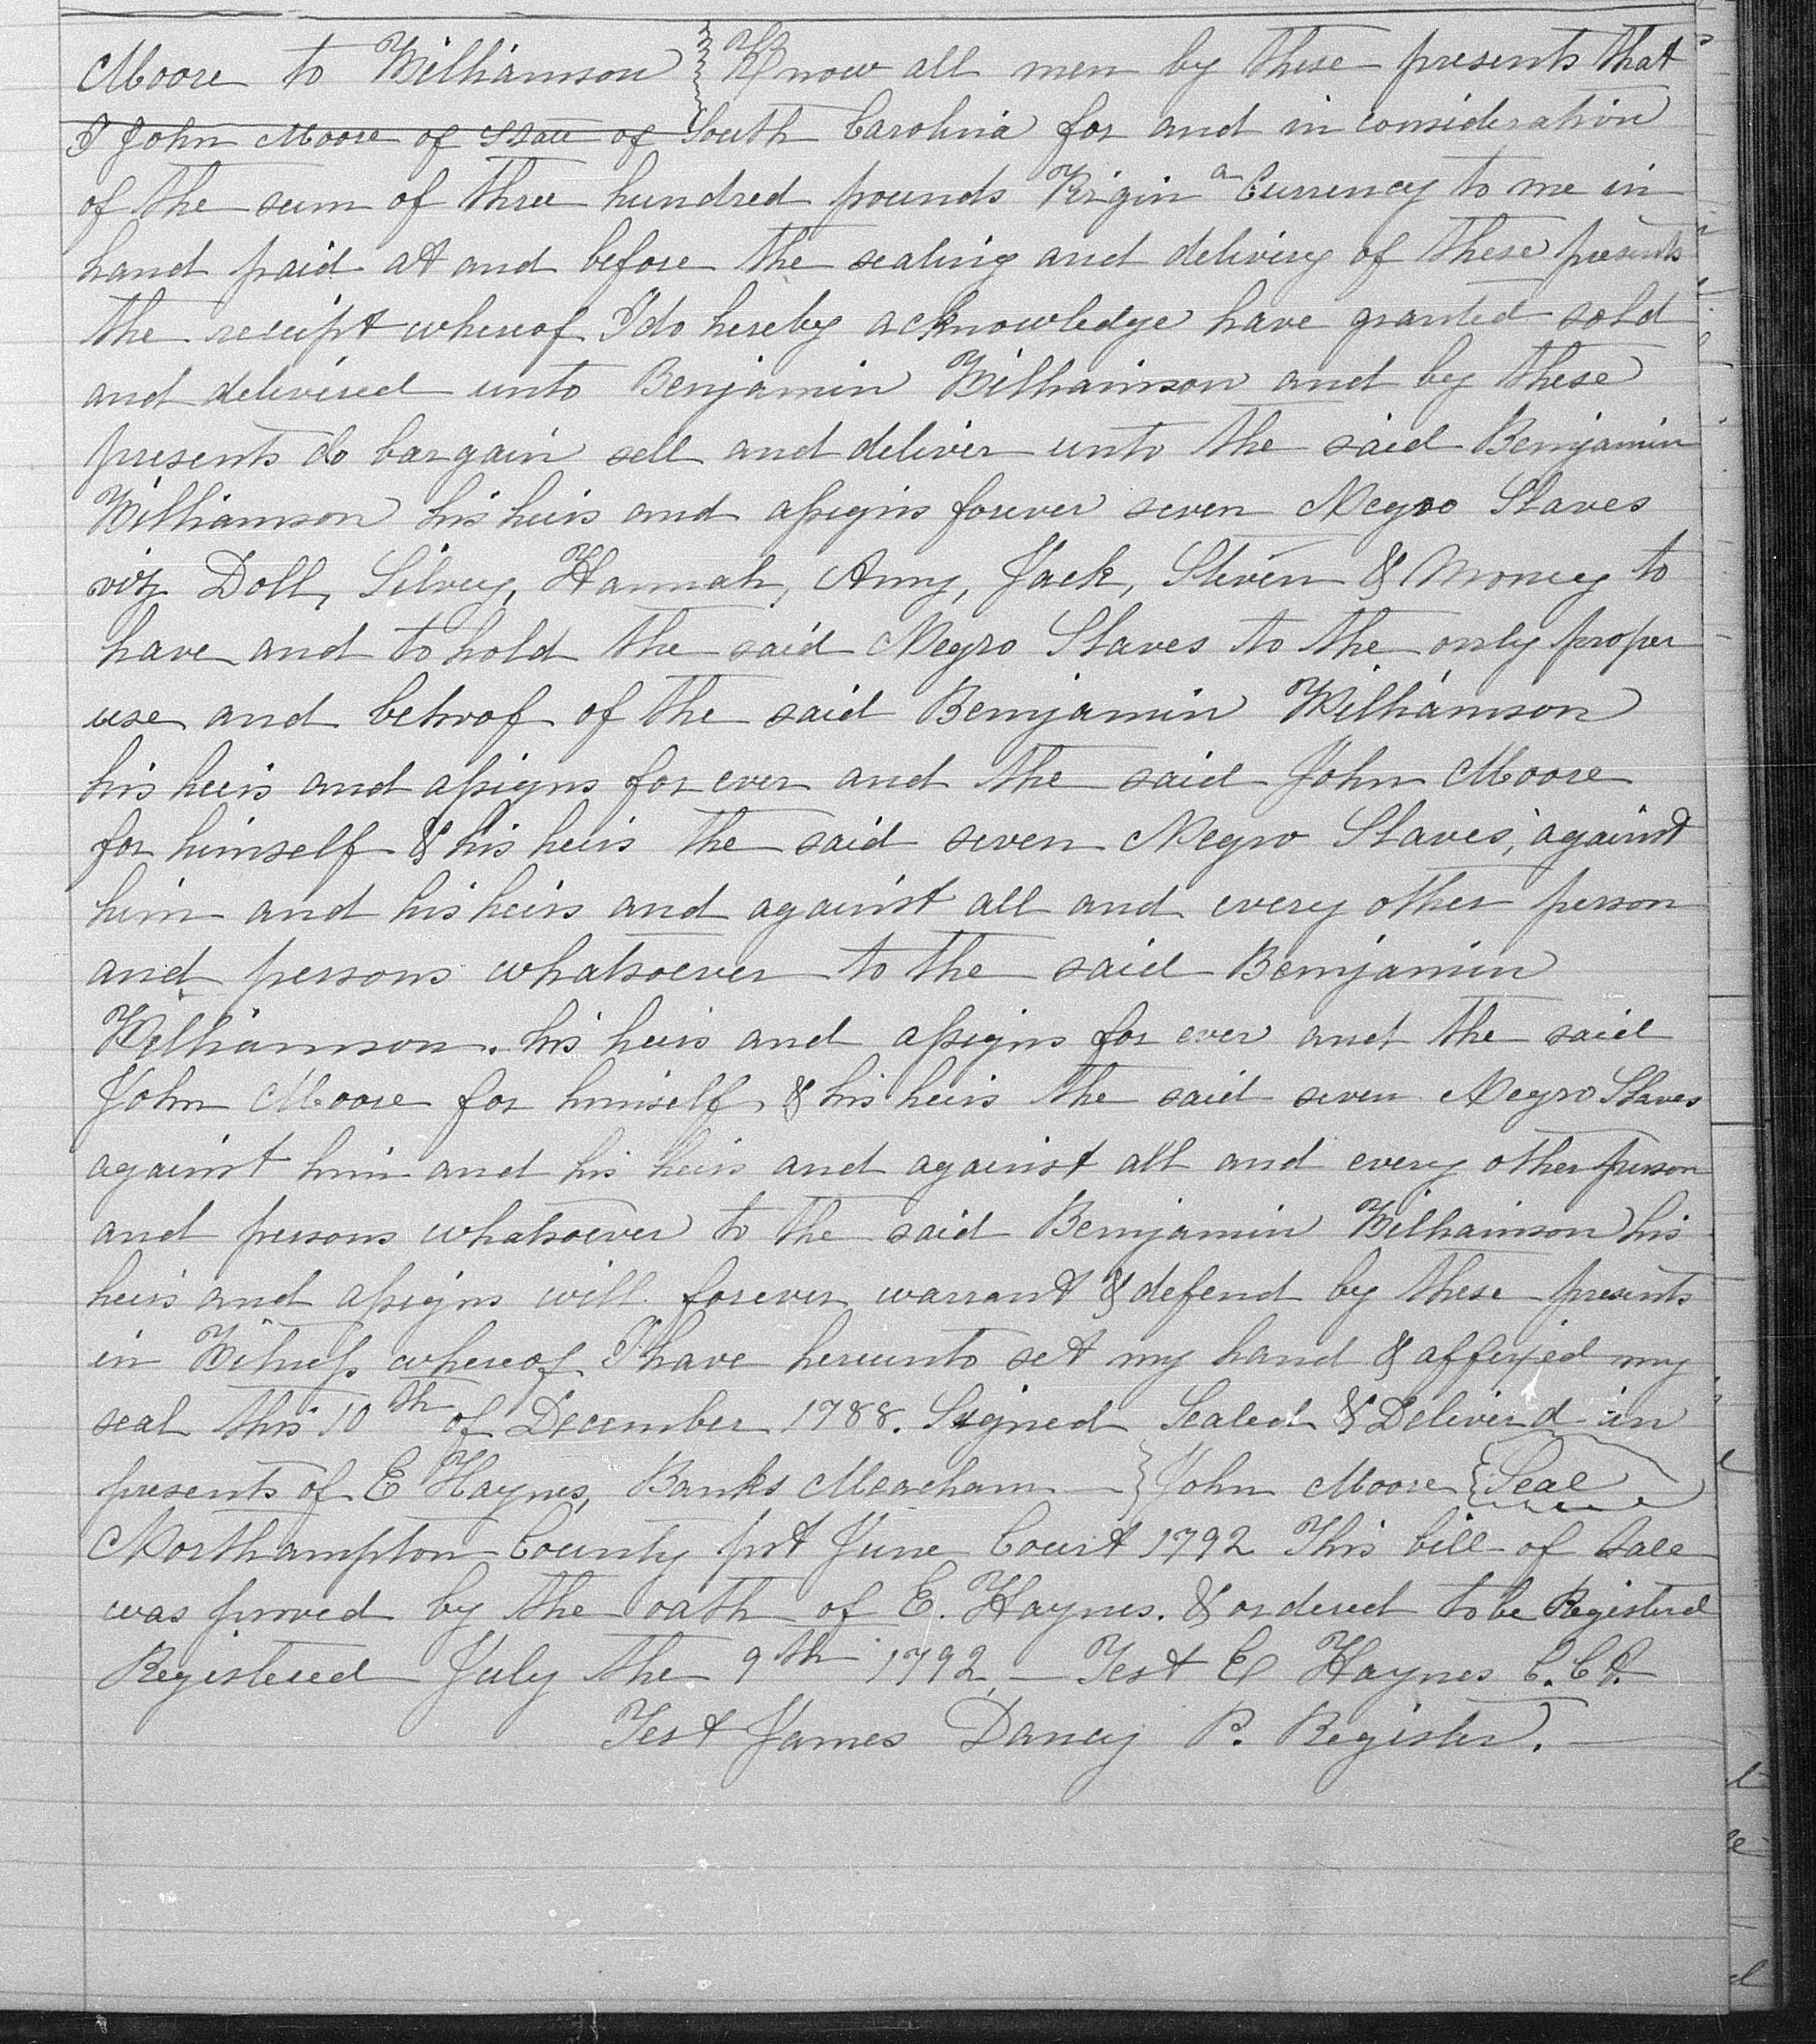 Moore to Williamson } Know all men by these presents that
I John Moore of State of South Carolina for and in consideration
of the sum of three hundred pounds Virgin a Currency to me in
hand paid at and before the sealing and delivery of these presents
the receipt whereof I do hereby acknowledge have granted sold
and delivered unto Benjamin Williamson and by these
presents do bargain sell and deliver unto the said Benjamin
Williamson his heirs and assigns forever seven Negro Slaves
viz Doll, Silvey, Hannah, Amy, Jack, Steven & Money to
have and to hold the said Negro Slaves to the only proper
use and behoof of the said Benjamin Williamson
his heirs and assigns for ever and the said John Moore
for himself & his heirs the said seven Negro Slaves, against
him and his heirs and against all and every other person
and persons whatsoever to the said Benjamin
Williamson. his heirs and assigns for ever and the said
John Moore for himself & his heirs the said seven Negro Slaves
against him and his heirs and against all and every other person
and persons whatsoever to the said Benjamin Williamson his
heirs and assigns will forever warrant & defend by these presents
in Witness whereof I have hereunto set my hand & affexied my
seal this 10th of December 1788. Signed Sealed & Deliverd in
presents of E Haynes, Banks Meacham } John Moore {Seal
Northampton County pst June Court 1792 This bill of Sale
was proved by the oath of E. Haynes. & ordered to be Registerd
Registered July the 9th 1792. — Test E Haynes C. Ct.
Test James Dancy P. Register.